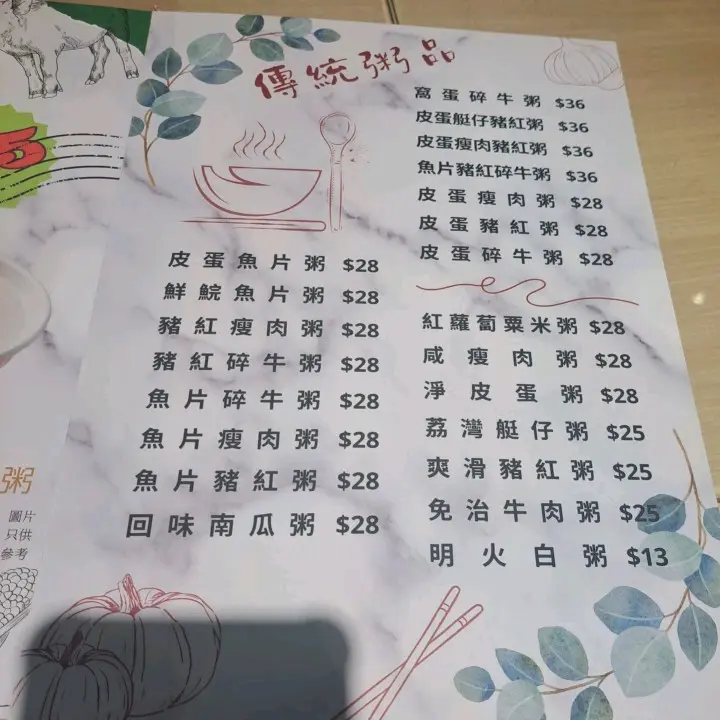 傳統粥品
窩蛋碎牛粥 $36
皮蛋艇仔豬紅粥 $36
皮蛋瘦肉豬紅粥 $36
魚片豬紅碎牛粥 $36
皮蛋瘦肉粥 $28
皮蛋豬紅粥 $28
皮蛋碎牛粥 $28
皮蛋魚片粥 $28
鮮鯇魚片粥 $28
豬紅瘦肉粥 $28
豬紅碎牛粥 $28
魚片碎牛粥 $28
魚片瘦肉粥 $28
魚片豬紅粥 $28
回味南瓜粥 $28
紅蘿蔔粟米粥 $28
咸瘦肉粥 $28
淨皮蛋粥 $28
荔灣艇仔粥 $25
爽滑豬紅粥 $25
免治牛肉粥 $25
明火白粥 $13
粥
圖片
只供
參考